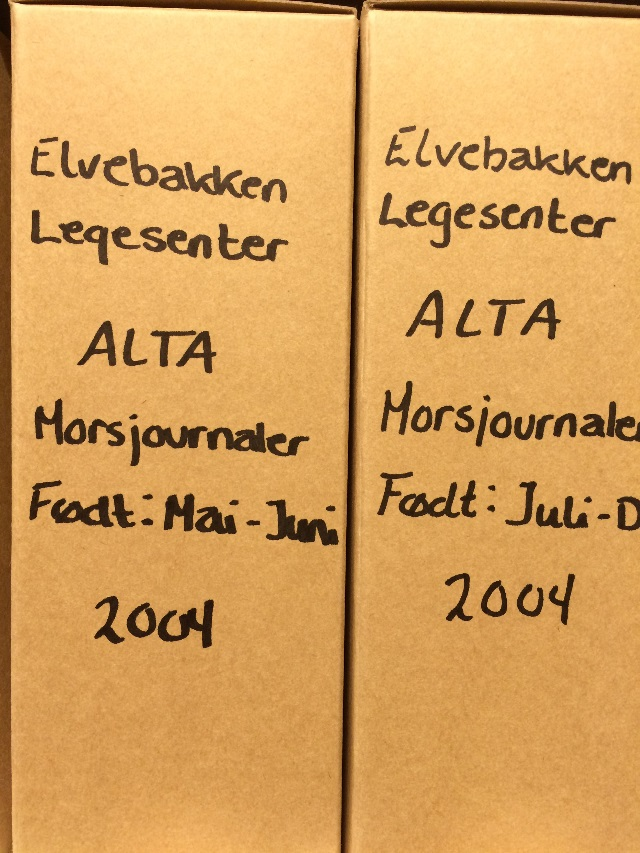 Elvebakken
Legesenter
ALTA
Morsjournaler
Født: Mai - Juni
2004
Elvebakken
Legesenter
ALTA
Morsjournaler
Født: Juli - D
2004